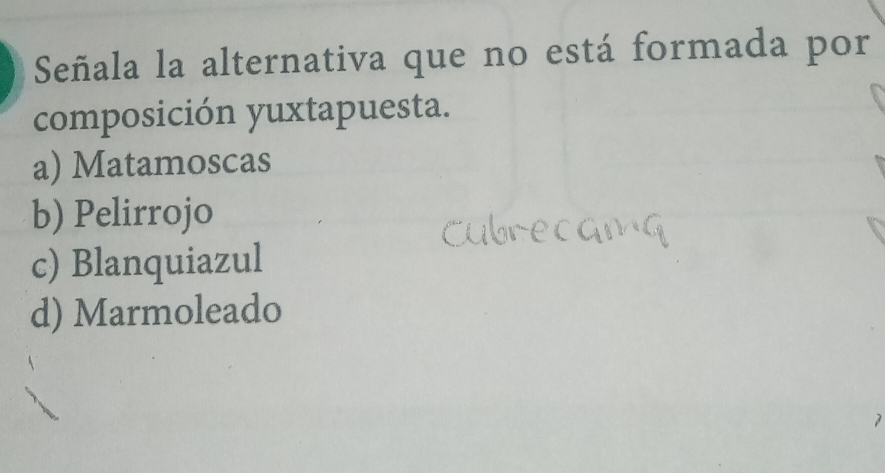 Señala la alternativa que no está formada por
composición yuxtapuesta.
a) Matamoscas
b) Pelirrojo
cubrecama
c) Blanquiazul
d) Marmoleado